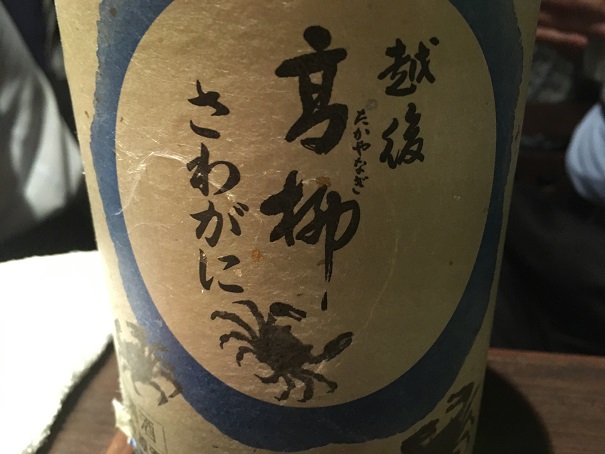 越後
高栁
たかやなぎ
さわがに
酒